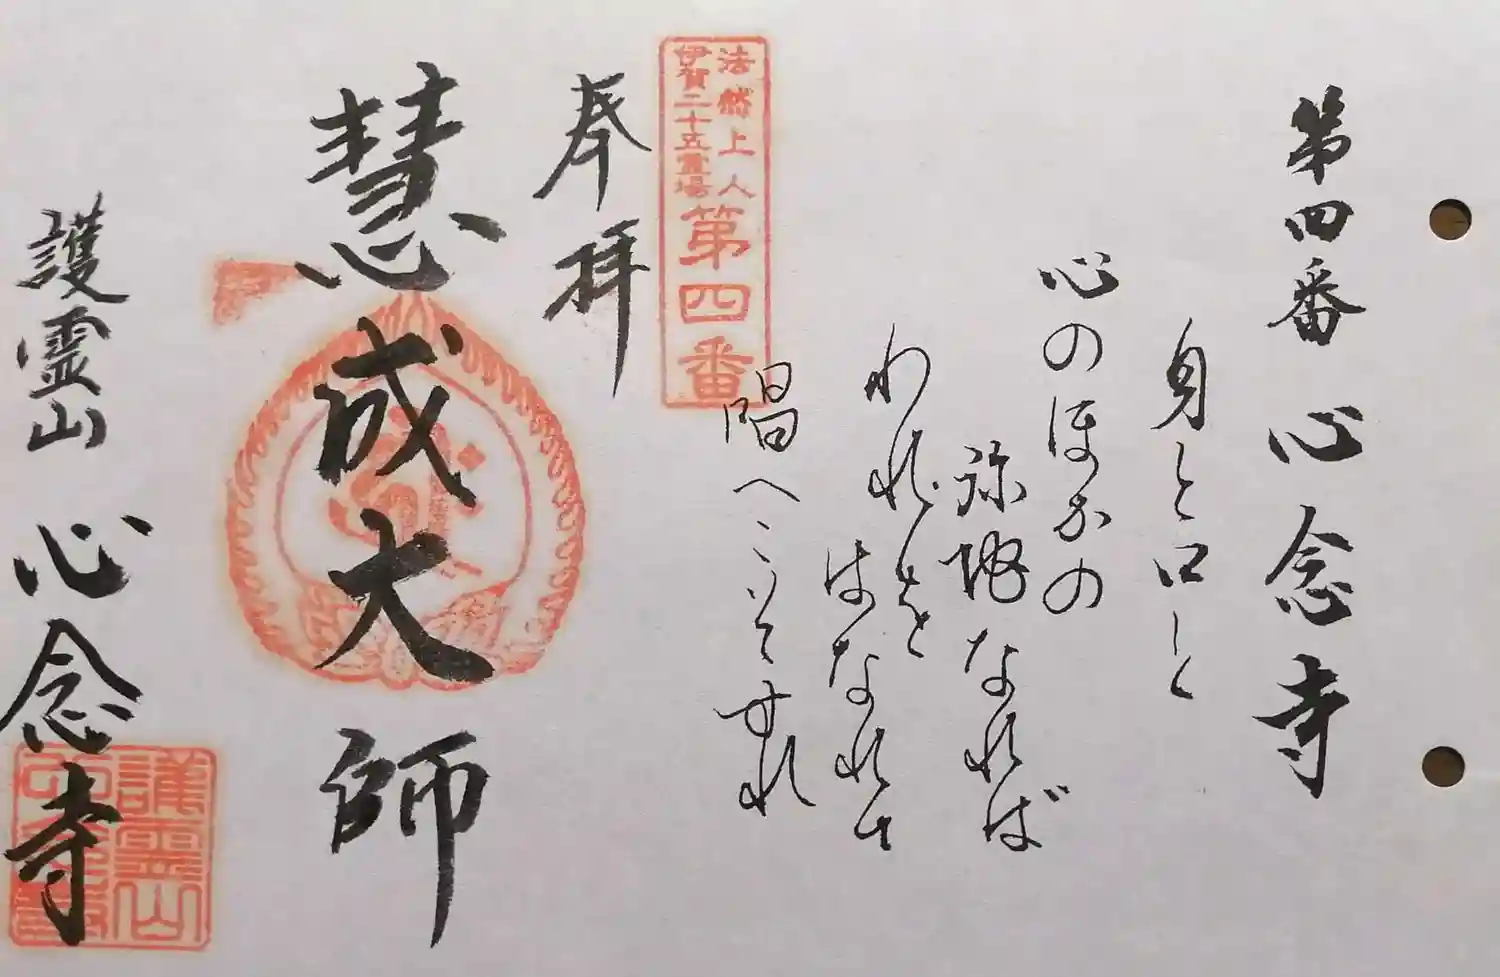 第四番 心念寺
身と口と
心のほかの
弥陀なれば
われを
はなれて
唱へこそすれ
法然上人
伊賀二十五霊場
第四番
奉拝
慧成大師
護霊山 心念寺
護霊山